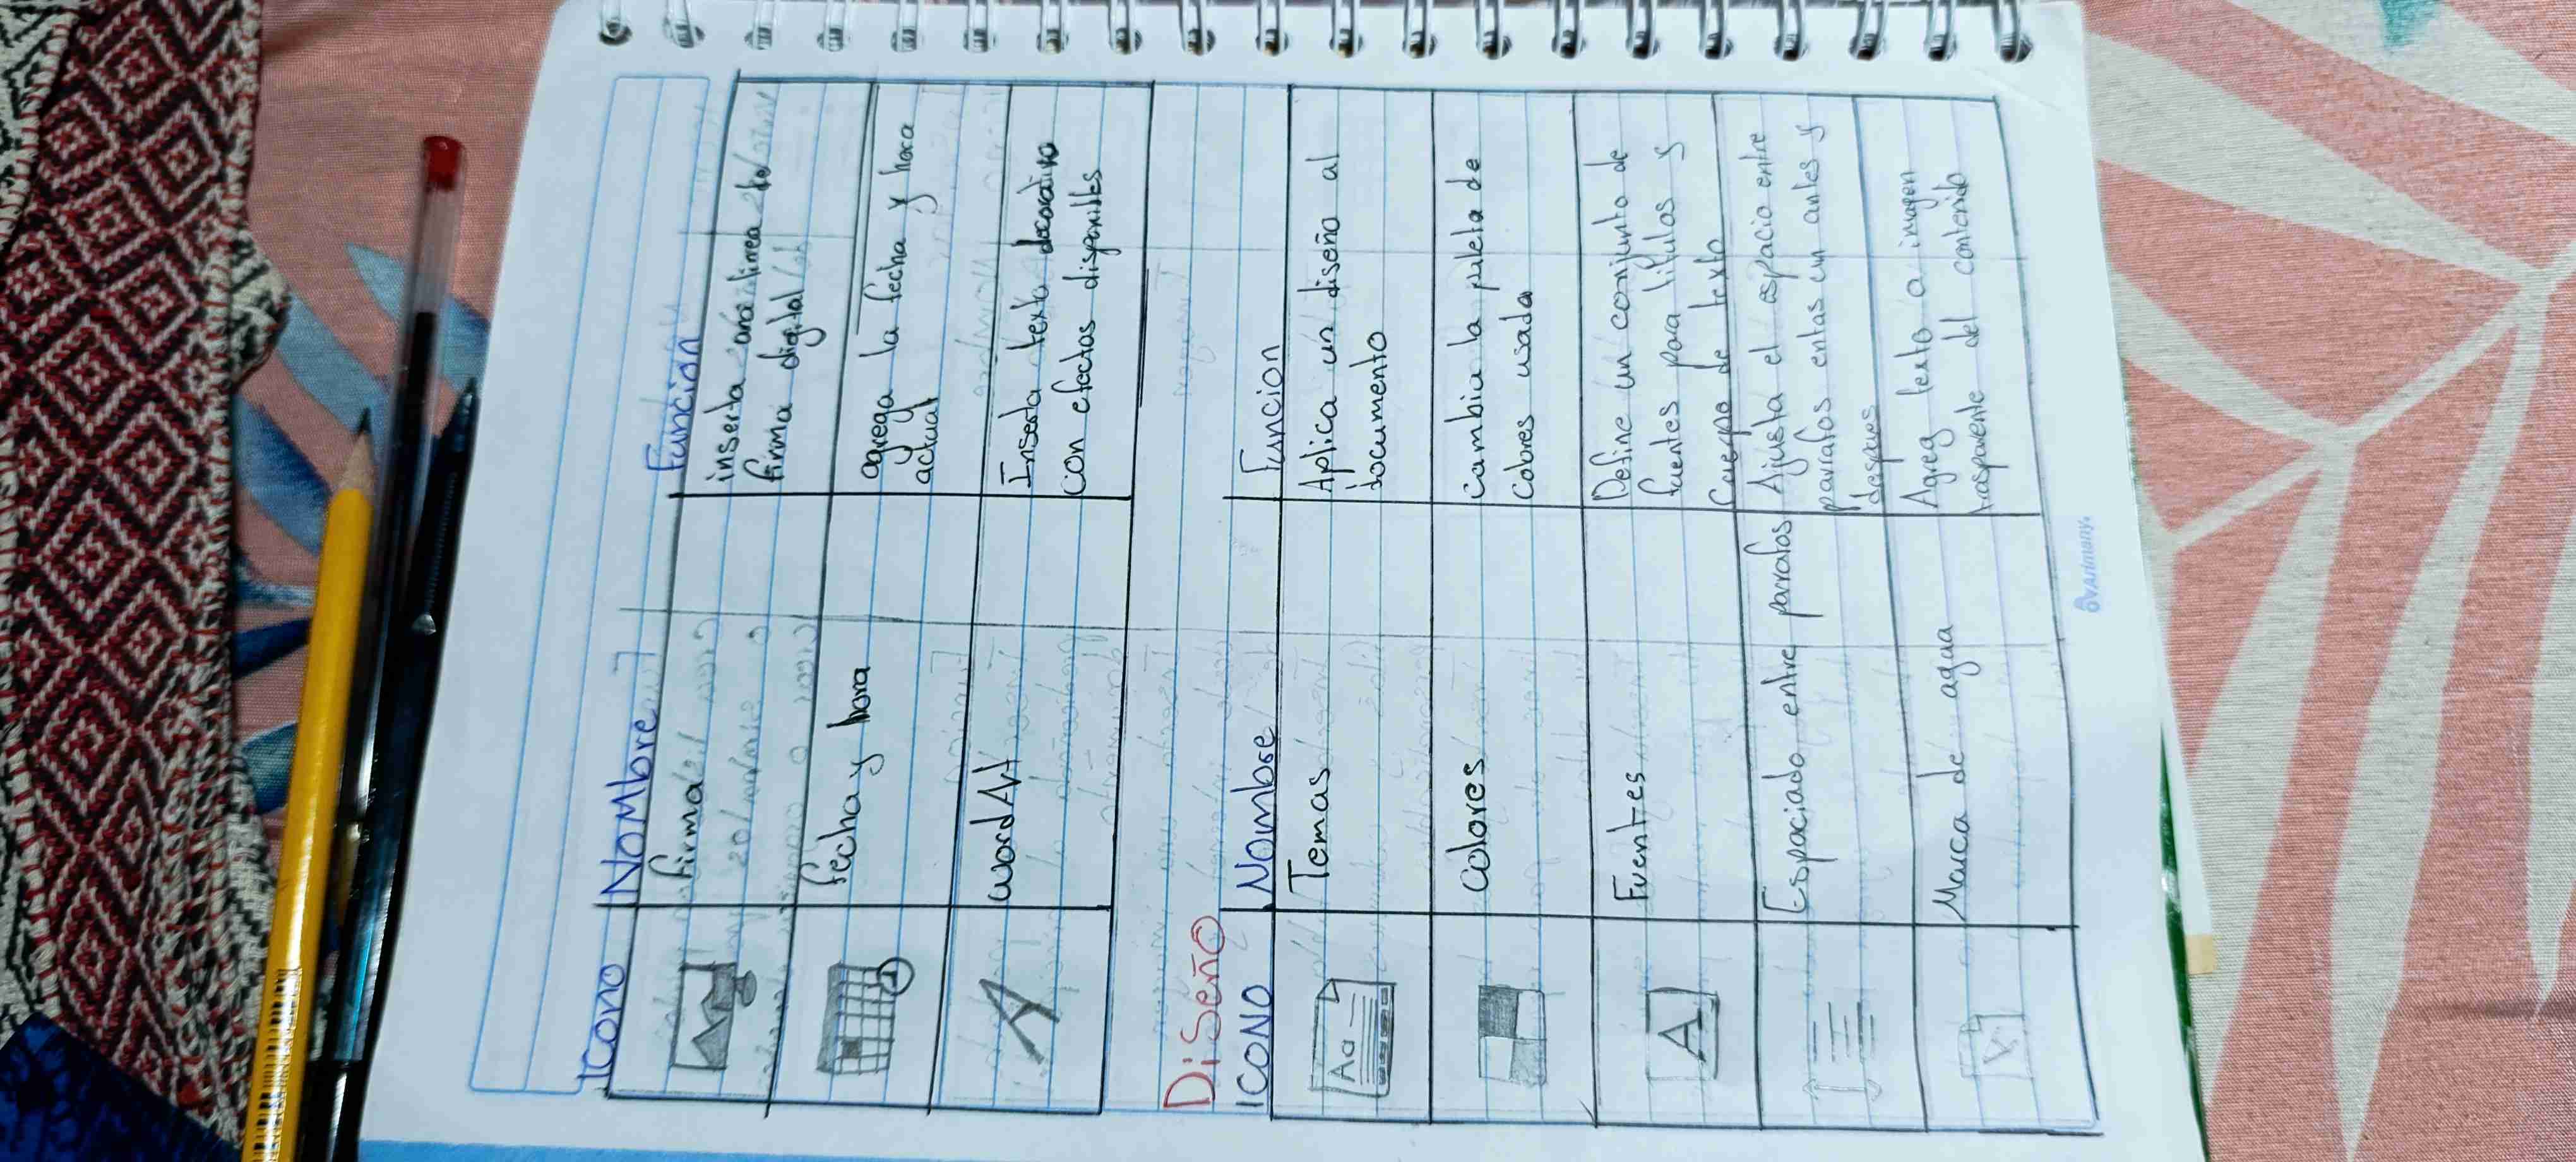 Icono Nombre Funcion
firma inserta una linea de
firma digital
fecha y hora agrega la fecha y hora
y
actual
wordArt Inserta texto decorativo
con efectos disponibles
Diseño
ICONO Nombre Funcion
Aa Temas Aplica un diseño al
documento
Colores Cambia la paleta de
Colores usada
A Fuentes Define un conjunto de
fuentes para titulos y
Cuerpo de texto
Espaciado entre parrafos Ajusta el espacio entre
parrafos entas un antes y
despues
Marca de agua Agreg texto a imagen
trasparente del contenido
Arimany